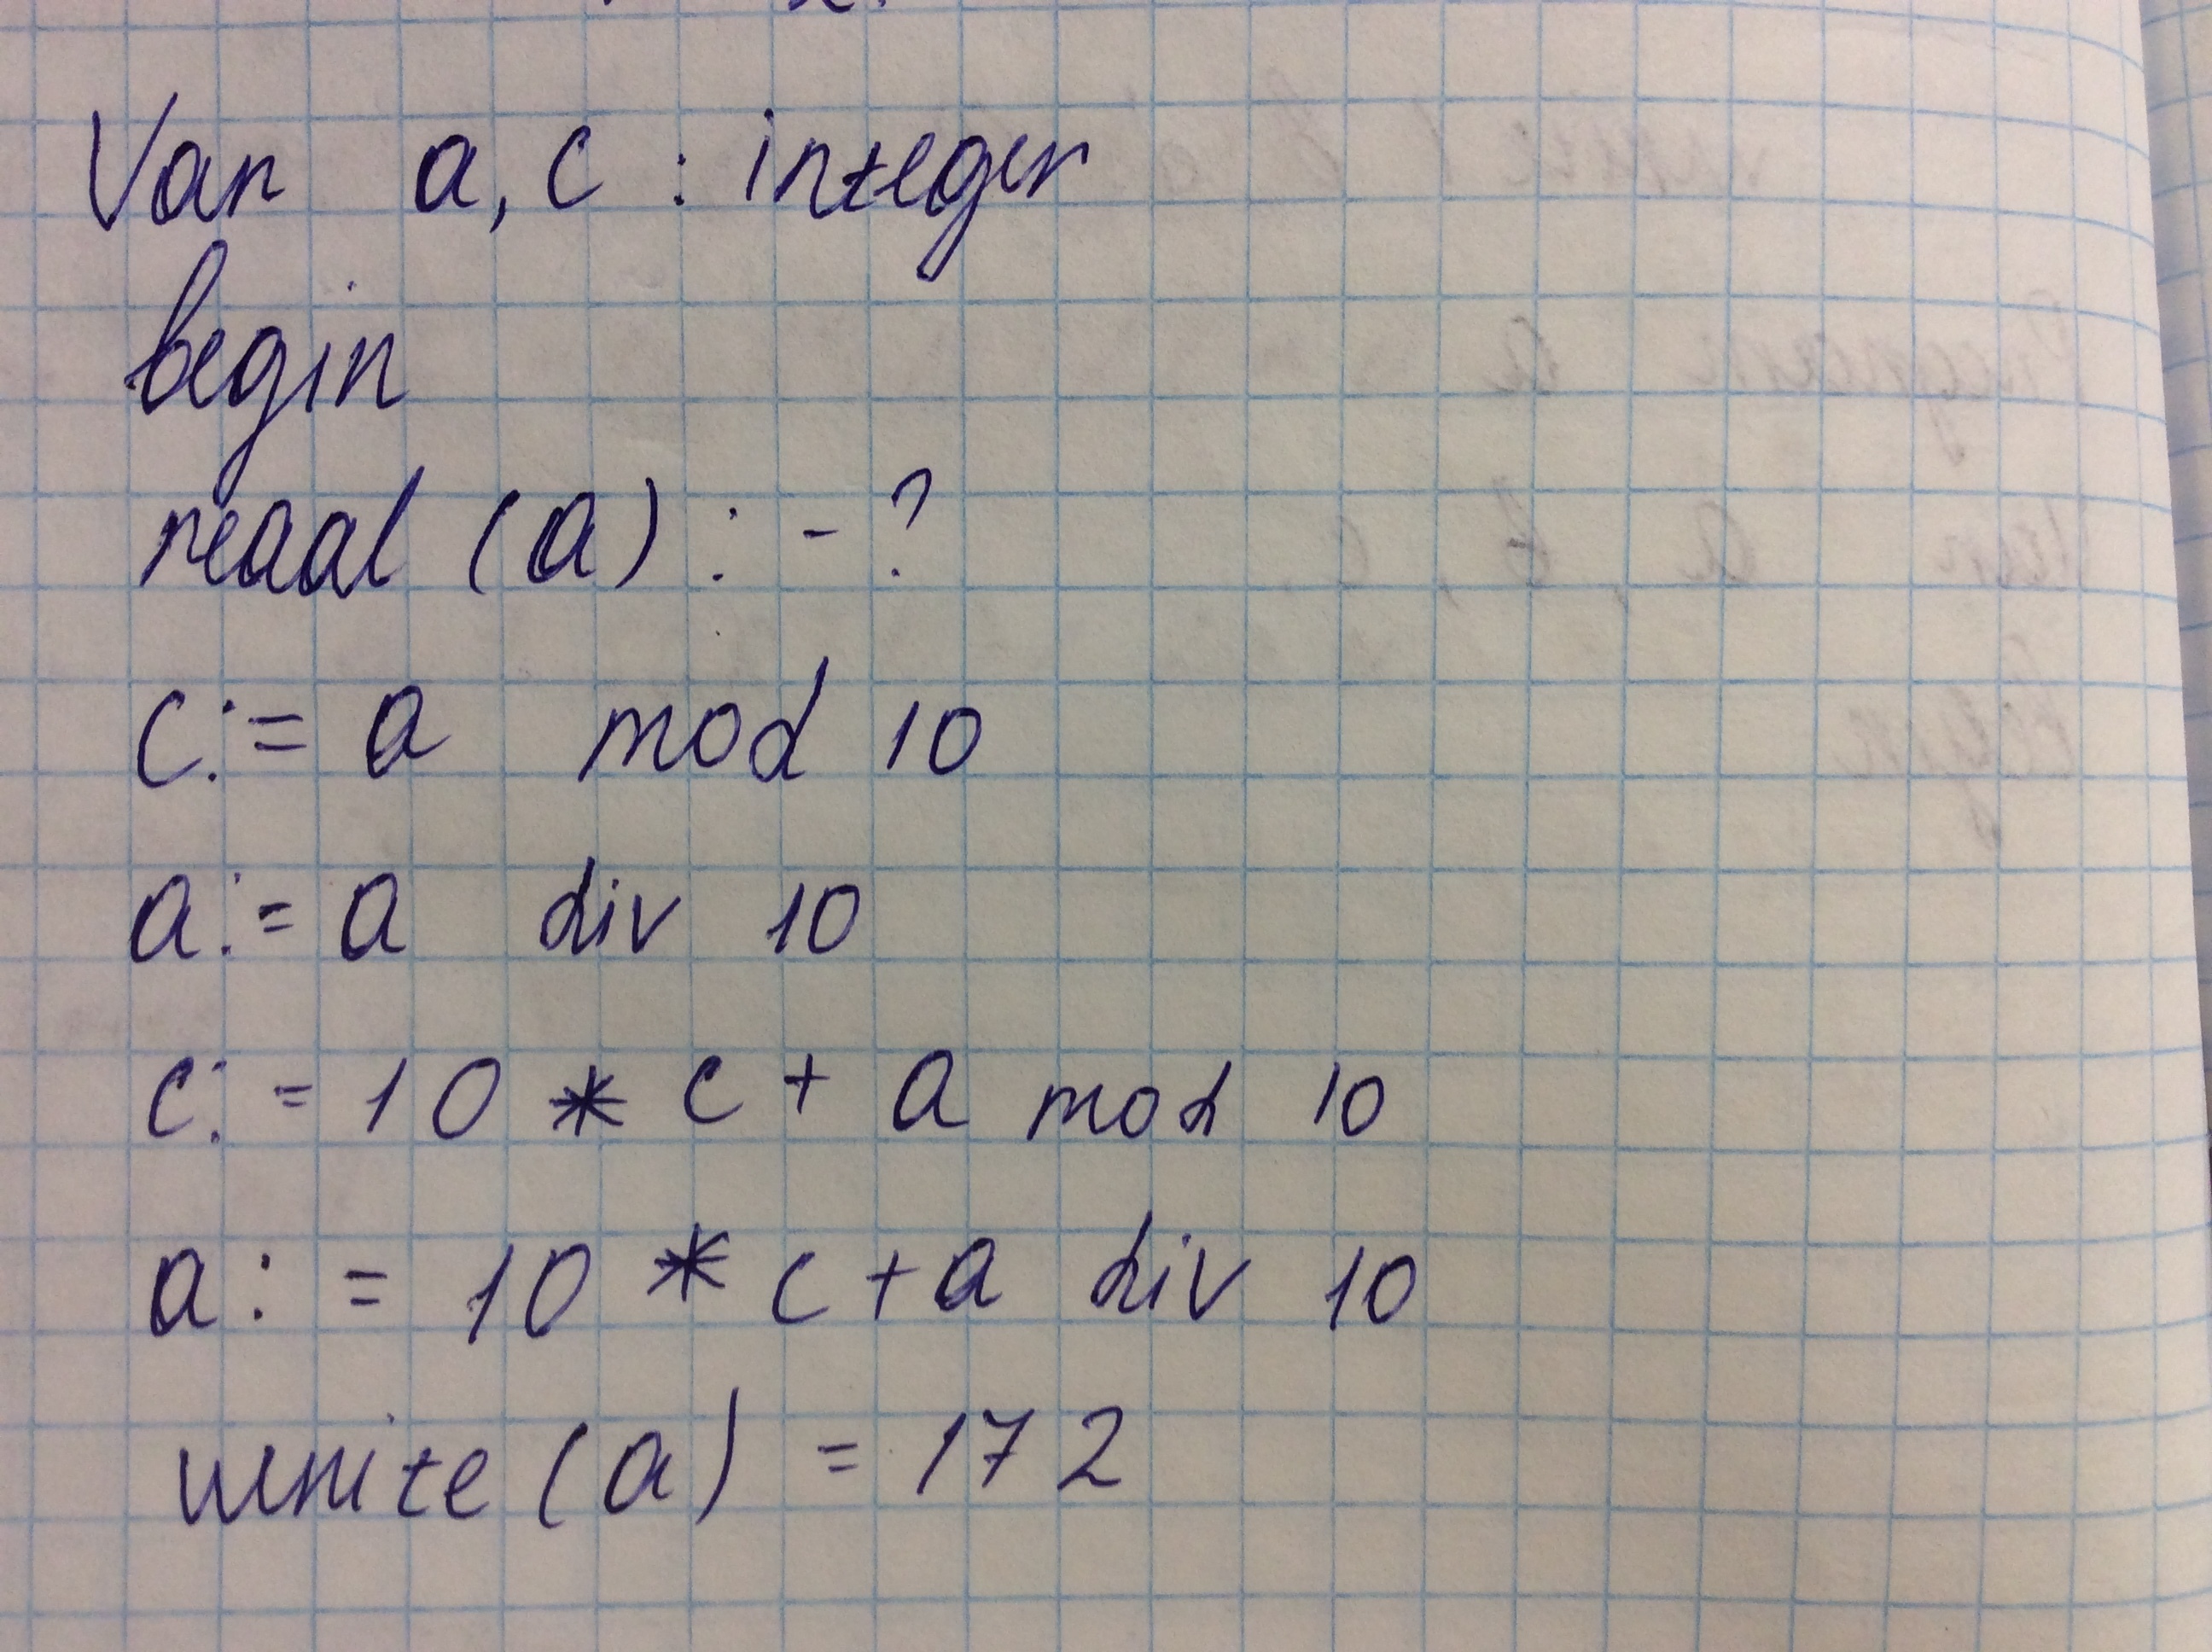 Var a, c : integer
begin
read (a) : - ?
c := a mod 10
a := a div 10
c : = 10 * c + a mod 10
a : = 10 * c + a div 10
write (a) = 172